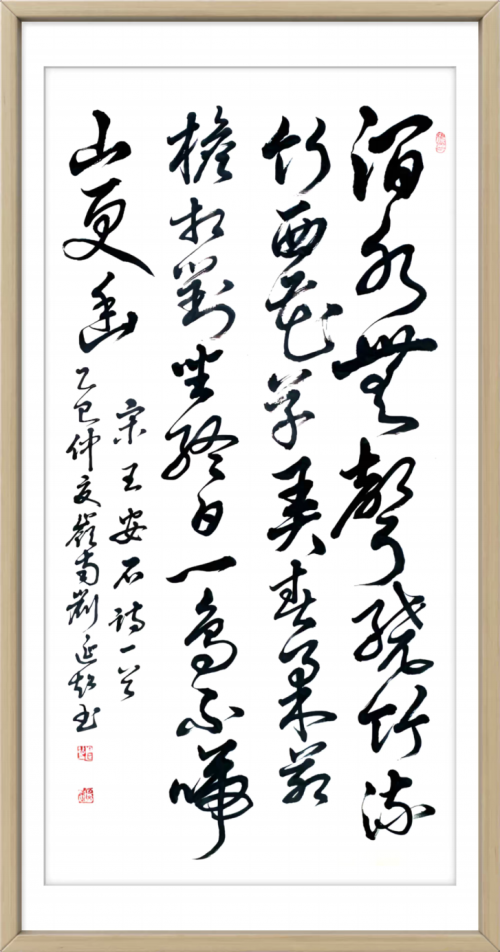 澗水無聲繞竹流
竹西花草弄春柔茅
檐相對坐終日一鳥不啼
山更幽
宋王安石詩一首
乙巳仲夏嶺南劉延書